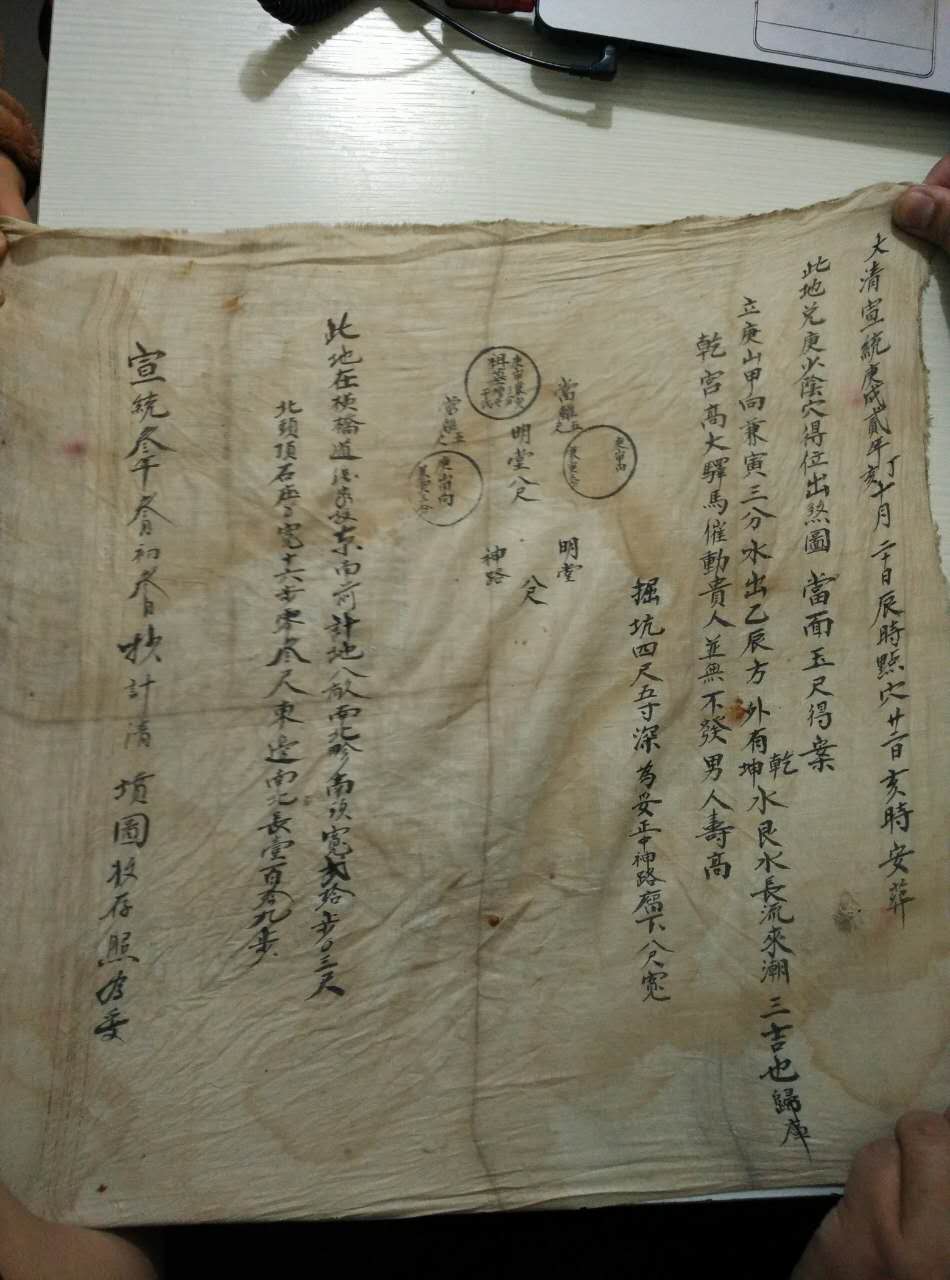 大清宣統庚戌貳年丁亥十月二十日辰時點穴廿二日亥時安葬
此地兌庚少陰穴得位出煞圖 當面玉尺得案
立庚山甲向兼寅三分水出乙辰方 外有乾坤水艮水長流來潮 三吉也歸庫
乾宮高大驛馬催動貴人並無不發男人壽高
掘坑四尺五寸深為妥正中神路留下八尺寬
明堂八尺
明堂
八尺
神路
此地在梗橋道 東南 計地八畝南北畛南頭寬貳拾步〇三尺
北頭頂石 寬十六步零 尺東邊南北長壹百 九步
宣統叁年叁月初叁日 計清 墳圖 存照為妥